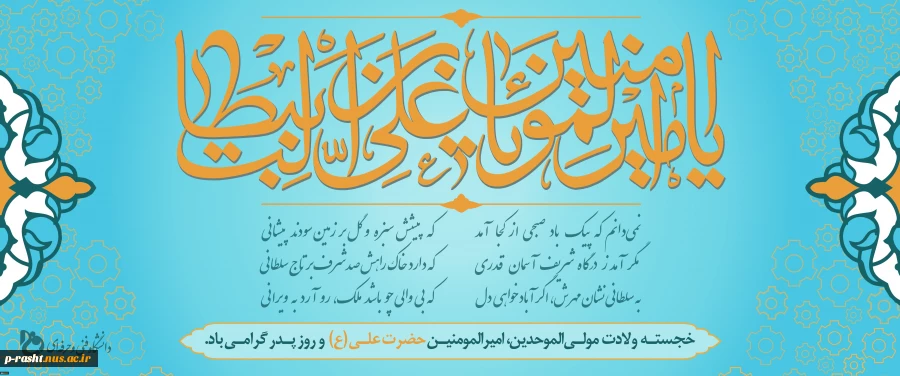 یا امیرالمومنین یا علی بن ابیطالب
نمی‌دانم که پیک باد صبحی از کجا آمد که پیشش سبزه و گل بر زمین سودند پیشانی
مگر آمد ز درگاه شریف آسمان قدری که دارد خاک راهش صد شرف بر تاج سلطانی
به سلطانی نشان مهرش، اگر آباد خواهی دل که بی والی چو باشد ملک، رو آرد به ویرانی
خجسته ولادت مولی‌الموحدین، امیرالمومنین حضرت علی (ع) و روز پدر گرامی‌باد.
دانشگاه فنی و حرفه‌ای
p-rasht.nus.ac.ir